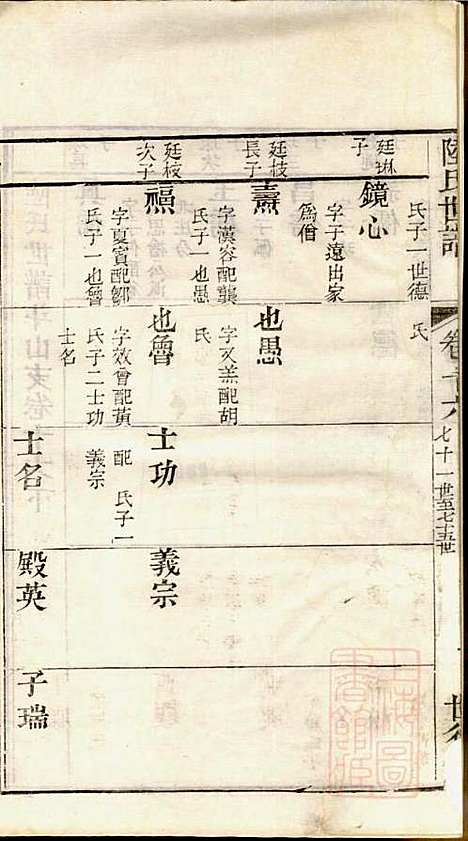 陸氏世譜
卷二十六
七十一世至七十五世
世
氏子一世德
氏
廷琳
子
鏡心
字子遠出家
爲僧
廷枝
長子
壽
字漢容配龔
氏子一也愚
也愚
字又羔配胡
氏
廷枝
次子
福
字夏賓配鄒
氏子一也魯
也魯
字效曾配黃
氏子二士功
士名
士功
配 氏子一
義宗
義宗
士名
殿英
子瑞